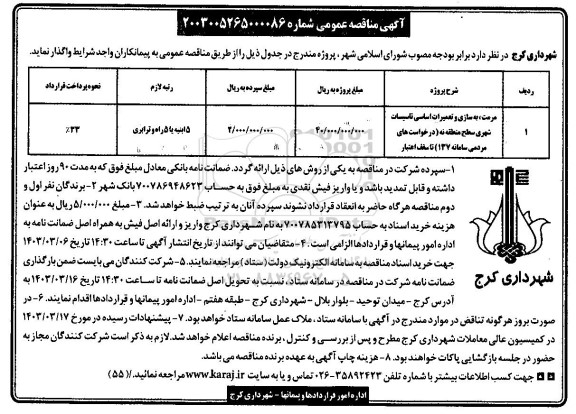 آگهی مناقصه عمومی شماره ۲۰۰۳۰۰۵۲۶۵۰۰۰۰۸۶
شهرداری کرج در نظر دارد برابر بودجه مصوب شورای اسلامی شهر ، پروژه مندرج در جدول ذیل را از طریق مناقصه عمومی به پیمانکاران واجد شرایط واگذار نماید.
ردیف شرح پروژه مبلغ پروژه به ریال مبلغ سپرده به ریال رتبه لازم نحوه پرداخت قرارداد
۱ مرمت ، به سازی و تعمیرات اساسی تاسیسات شهری سطح منطقه نه (درخواست های مردمی سامانه ۱۳۷) تا سقف اعتبار ۴۰/۰۰۰/۰۰۰/۰۰۰ ۲/۰۰۰/۰۰۰/۰۰۰ ۵ ابنیه یا ۵ راه و ترابری ۳۳٪
۱-سپرده شرکت در مناقصه به یکی از روش های ذیل ارائه گردد. ضمانت نامه بانکی معادل مبلغ فوق که به مدت ۹۰ روز اعتبار
داشته و قابل تمدید باشد و یا واریز فیش نقدی به مبلغ فوق به حساب ۷۰۰۷۸۶۹۴۸۶۲۳ بانک شهر ۲- برندگان نفر اول و
دوم مناقصه هرگاه حاضر به انعقاد قرارداد نشوند سپرده آنان به ترتیب ضبط خواهد شد. ۳- مبلغ ۵/۰۰۰/۰۰۰ ریال به عنوان
هزینه خرید اسناد به حساب ۷۰۰۷۸۵۳۱۳۷۹۵ به نام شهرداری کرج واریز و ارائه اصل فیش به همراه اصل ضمانت نامه به
اداره امور پیمانها و قراردادها الزامی است . ۴- متقاضیان می توانند از تاریخ انتشار آگهی تا ساعت ۱۴:۳۰ تاریخ ۱۴۰۳/۰۳/۰۶
جهت خرید اسناد مناقصه به سامانه الکترونیک دولت (ستاد) مراجعه نمایند. ۵- شرکت کنندگان می بایست ضمن بارگذاری
ضمانت نامه شرکت در مناقصه در سامانه ستاد، نسبت به تحویل اصل ضمانت نامه تا ساعت ۱۴:۳۰ تاریخ ۱۴۰۳/۰۳/۱۶ به
آدرس کرج - میدان توحید - بلوار بلال - شهرداری کرج - طبقه هفتم - اداره امور پیمانها و قراردادها اقدام نمایند. ۶- در
صورت بروز هرگونه تناقض در موارد مندرج در آگهی با سامانه ستاد، ملاک عمل سامانه ستاد خواهد بود. ۷- پیشنهادات رسیده در مورخ ۱۴۰۳/۰۳/۱۷
در کمیسیون عالی معاملات شهرداری کرج مطرح و پس از بررسی و کنترل ، برنده مناقصه اعلام خواهد شد. لازم به ذکر است شرکت کنندگان مجاز به
حضور در جلسه بازگشایی پاکات خواهند بود. ۸- هزینه چاپ آگهی به عهده برنده مناقصه می باشد.
جهت کسب اطلاعات بیشتر با شماره تلفن ۳۵۸۹۲۴۲۳-۰۲۶ تماس و یا به سایت www.karaj.ir مراجعه نمائید./ (۵۵)
شهرداری کرج
اداره امور قراردادها و پیمانها - شهرداری کرج